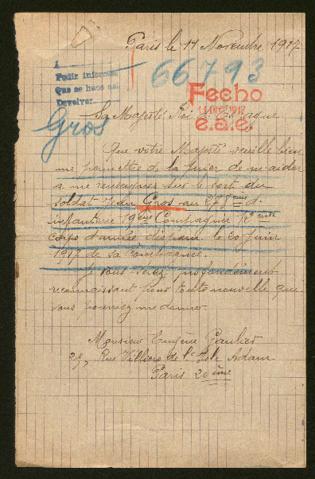 Paris le 11 Novembre 1917
A
Pedir informes
Que se hace en
Devolver
66793
Fecho
e.a.e.
Gros
Sa Majesté Roi
Que votre Majesté veuille bien
me permettre de la prier de m'aider
a me renseigner sur le sort du
soldat Jean Gros au
infanterie 19ème Compagnie
corps d'armée disparu le 30 Juin
1917 de sa
Je vous serez profondément
reconnaissant pour toute nouvelle que
vous pourriez me donner.
Monsieur Eugène Gaulier
29, Rue Villiers de l'Isle Adam
Paris 20ème